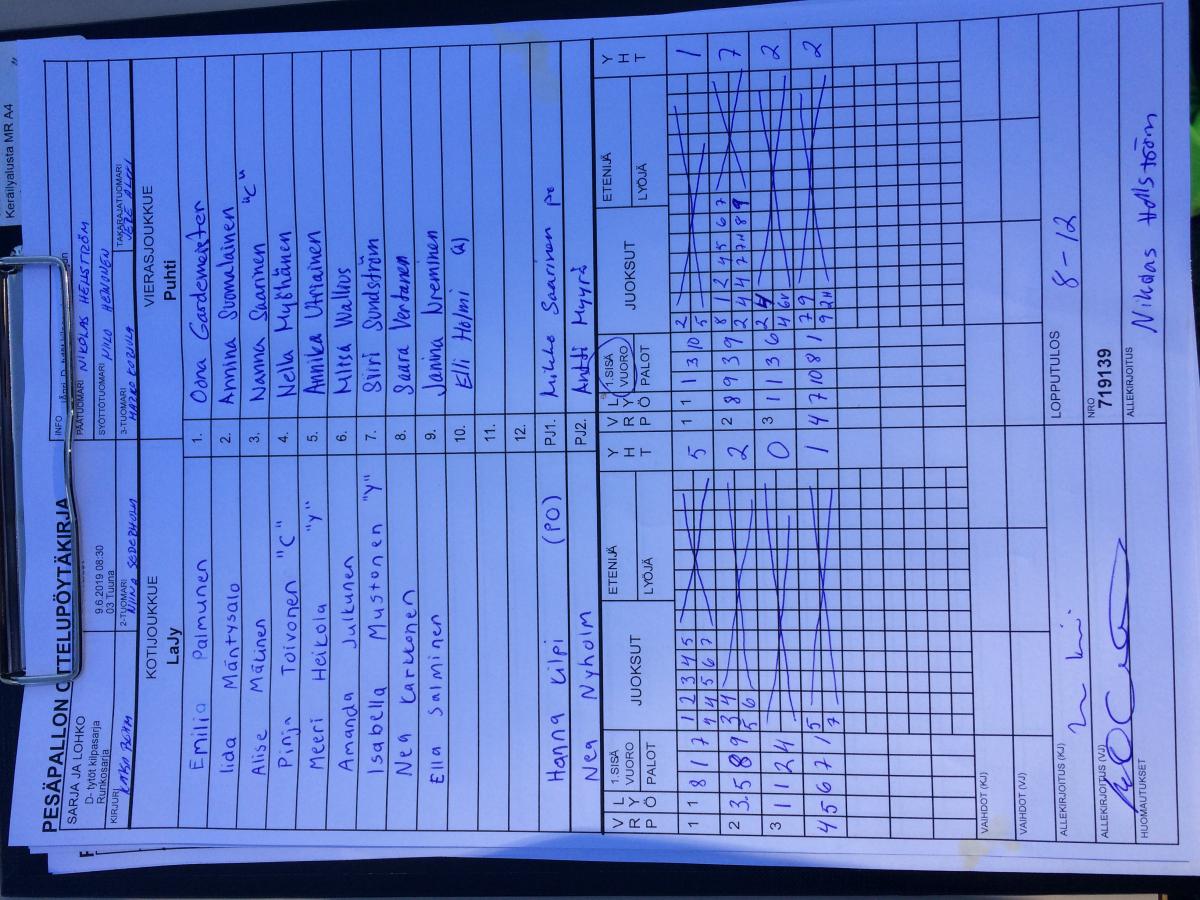 Keräilyalusta MR A4
PESÄPALLON OTTELUPÖYTÄKIRJA
SARJA JA LOHKO
D- tytöt kilpasarja
Runkosarja
9.6.2019 08:30
03 Tuuna
INFO
PÄÄTUOMARI NIKOLAS HELLSTRÖM
SYÖTTÖTUOMARI MILO HEINONEN
KIRJURI
2-TUOMARI NIINA SEDERHOLM
3-TUOMARI
TAKARAJATUOMARI
KOTIJOUKKUE VIERASJOUKKUE
LaJy Puhti
Emilia Palmunen 1. Oona Gardemeister
Iida Mäntysalo 2. Annina Suomalainen
Alise Mäkinen 3. Nanna Saarinen "C"
Pinja Toivonen "C" 4. Nella Myöhänen
Meeri Heikola "Y" 5. Annika Utriainen
Amanda Julkunen 6. Miisa Wallius
Isabella Mustonen "Y" 7. Siiri Sundström
Nea Karkkonen 8. Saara Vertanen
Ella Salminen 9. Janina Nreminen
10. Elli Holmi (a)
11.
12.
Hanna Kilpi (PO) PJ1. Mikko Saarinen po
Nea Nyholm PJ2. Antti Myyrä
V R P L Y Ö 1.SISÄ VUORO PALOT JUOKSUT ETENIJÄ LYÖJÄ Y H T V R P L Y Ö 1.SISÄ VUORO PALOT JUOKSUT ETENIJÄ LYÖJÄ Y H T
1 1 8 1 7 1 2 3 4 5 5 1 1 1 3 10 2 1
4 4 5 6 7 5
2 3 5 8 9 3 4 2 2 8 9 3 9 8 1 2 4 5 6 7 7
5 6 2 4 4 7 7H 8 9
3 1 1 2 4 0 3 1 1 3 6 2 4 2
4 6V
4 5 6 7 1 5 1 4 7 10 8 1 7 9 2
7 9 2H
VAIHDOT (KJ)
VAIHDOT (VJ)
ALLEKIRJOITUS (KJ) LOPPUTULOS 8-12
ALLEKIRJOITUS (VJ) NRO
719139
HUOMAUTUKSET ALLEKIRJOITUS Nikolas Hellström